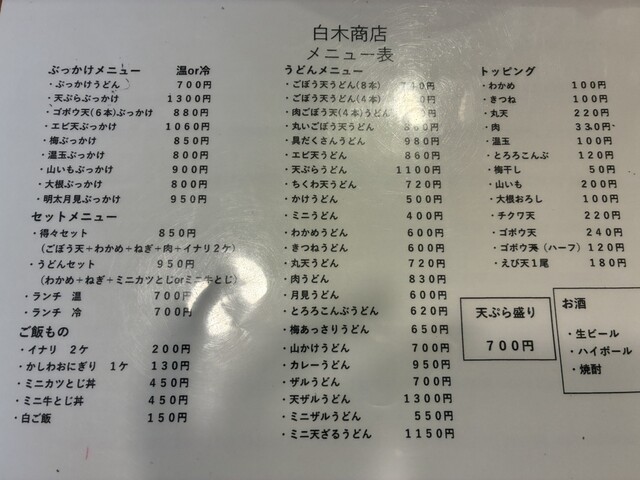 白木商店
メニュー表
ぶっかけメニュー 温or冷
・ぶっかけうどん 700円
・天ぷらぶっかけ 1300円
・ゴボウ天(6本)ぶっかけ 880円
・エビ天ぶっかけ 1060円
・梅ぶっかけ 850円
・温玉ぶっかけ 800円
・山いもぶっかけ 900円
・大根ぶっかけ 800円
・明太月見ぶっかけ 950円
セットメニュー
・得々セット 850円
(ごぼう天+わかめ+ねぎ+肉+イナリ2ケ)
・うどんセット 950円
(わかめ+ねぎ+ミニカツとじorミニ牛とじ)
・ランチ 温 700円
・ランチ 冷 700円
ご飯もの
・イナリ 2ケ 200円
・かしわおにぎり 1ケ 130円
・ミニカツとじ丼 450円
・ミニ牛とじ丼 450円
・白ご飯 150円
うどんメニュー
・ごぼう天うどん(8本) 円
・ごぼう天うどん(4本) 円
・肉ごぼう天(4本)うどん 円
・丸いごぼう天うどん 円
・具だくさんうどん 980円
・エビ天うどん 860円
・天ぷらうどん 1100円
・ちくわ天うどん 720円
・かけうどん 500円
・ミニうどん 400円
・わかめうどん 600円
・きつねうどん 600円
・丸天うどん 720円
・肉うどん 830円
・月見うどん 600円
・とろろこんぶうどん 620円
・梅あっさりうどん 650円
・山かけうどん 700円
・カレーうどん 950円
・ザルうどん 700円
・天ザルうどん 1300円
・ミニザルうどん 550円
・ミニ天ざるうどん 1150円
トッピング
・わかめ 100円
・きつね 100円
・丸天 220円
・肉 330円
・温玉 100円
・とろろこんぶ 120円
・梅干し 50円
・山いも 200円
・大根おろし 100円
・チクワ天 220円
・ゴボウ天 240円
・ゴボウ天(ハーフ) 120円
・えび天1尾 180円
天ぷら盛り
700円
お酒
・生ビール
・ハイボール
・焼酎